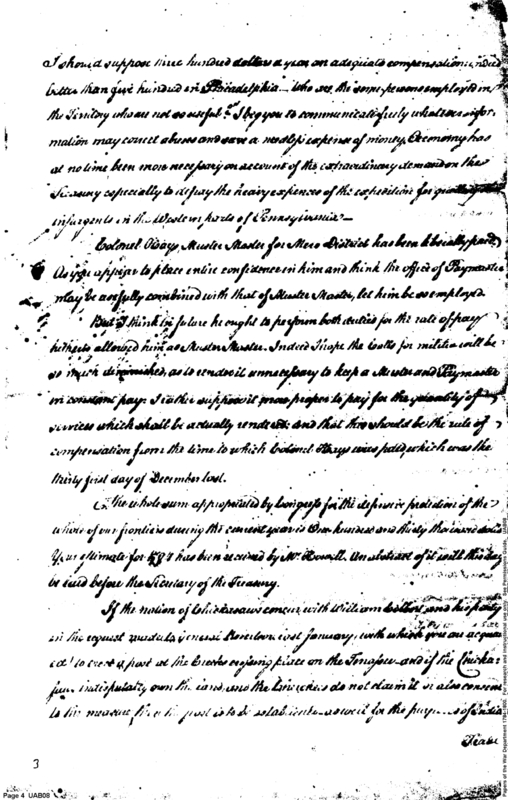 I should suppose three hundred dollars a year an adequate compensation, indeed
better than five hundred in Philadelphia. Who are the some persons employed in
the Territory who are not so useful? I beg you to communicate freely whatever infor-
mation may correct abuses and save a needless expense of money. Oeconomy has
at no time been more necessary on account of the extraordinary demand on the
Treasury especially to defray the heavy expences of the expedition for quelling the
insurgents in the Western parts of Pennsylvania.
Colonel Hays, Muster Master for Mero District has been liberally paid.
As you appear to place entire confidence in him and think the office of Paymaster
may be usefully combined with that of Muster Master, let him be so employed.
But I think in future he ought to perform both duties for the rate of pay
hitherto allowed him as Muster Master. Indeed I hope the Calls for militia will be
so much diminished, as to render it unnecessary to keep a Muster and Paymaster
in constant pay. I rather suppose it more proper to pay for the quantity of
services which shall be actually rendered: and that this should be the rule of
compensation from the time to which Colonel Hays was paid, which was the
thirty first day of December last.
The whole sum appropriated by Congress for the defensive protection of the
whole of our frontiers during the current year is One hundred and thirty thousand dolls
Your estimate for has been received by Mr. Howell. An abstract of it will this day
be laid before the Secretary of the Treasury.
If the nation of Chickasaws concur with William Colbert and his party
in the request made to General Robertson last January, with which you are acquain
ted to erect a post at the Creeks crossing place on the Tenasee and if the Chicka-
saws indisputably own the land, and the Cherokees do not claim it or also consent
to the measure the post is to be established as well for the purposes of India
Trade
3
Page 4 UAB08